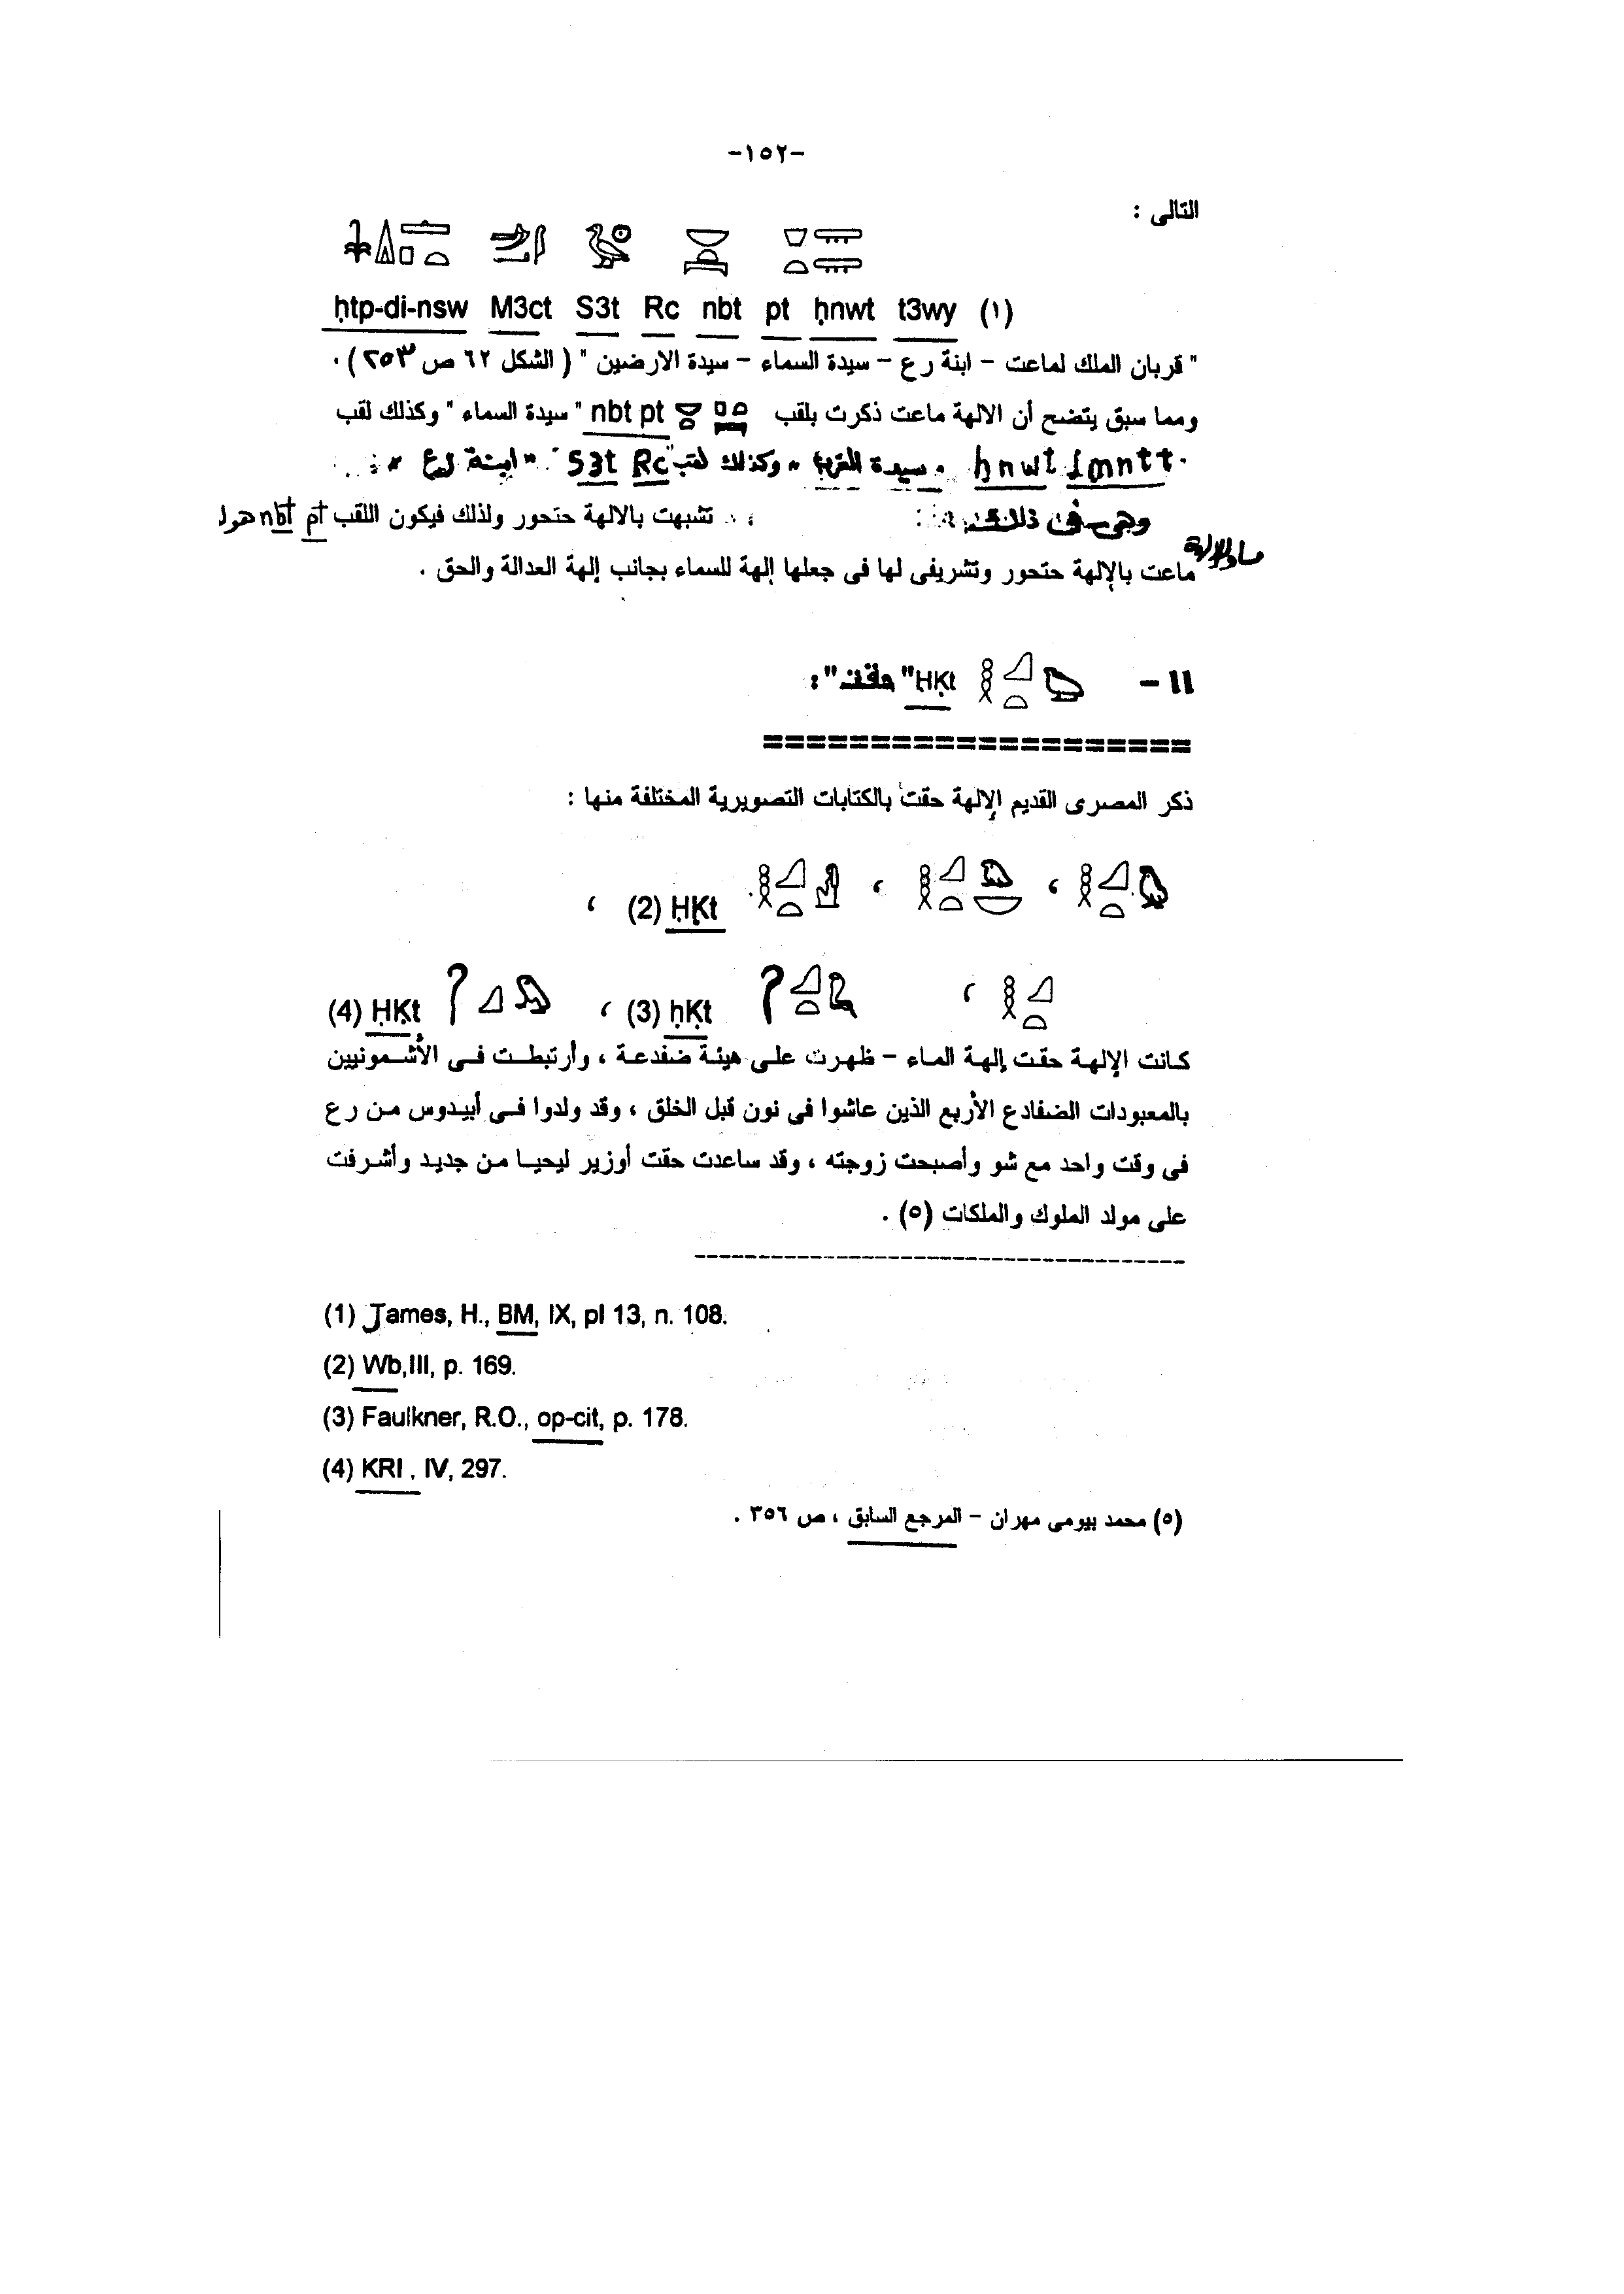 -١٥٢-
التالى :
ḥtp-di-nsw M3ct S3t Rc nbt pt ḥnwt t3wy (١)
" قربان الملك لماعت - ابنة رع - سيدة السماء - سيدة الارضين " ( الشكل ٦٢ ص ٢٥٣ ) .
ومما سبق يتضح أن الالهة ماعت ذكرت بلقب nbt pt " سيدة السماء " وكذلك لقب
ḥnwt Imntt " سيدة الغرب " وكذلك لقب S3t Rc " ابنة رع "
وهى فى ذلك تشبهت بالالهة حتحور ولذلك فيكون اللقب nbt pt هو
ماعت بالإلهة حتحور وتشريفى لها فى جعلها إلهة للسماء بجانب إلهة العدالة والحق .
١١- ḤḲt "حقت":
====================
ذكر المصرى القديم الإلهة حقت بالكتابات التصويرية المختلفة منها :
، ، ḤḲt (2) ،
، ḥḲt (3) ، ḤḲt (4)
كانت الإلهة حقت إلهة الماء - ظهرت على هيئة ضفدعة ، وأرتبطت فى الأشمونيين
بالمعبودات الضفادع الأربع الذين عاشوا فى نون قبل الخلق ، وقد ولدوا فى أبيدوس من رع
فى وقت واحد مع شو وأصبحت زوجته ، وقد ساعدت حقت أوزير ليحيا من جديد وأشرفت
على مولد الملوك والملكات (٥) .
(1) James, H., BM, IX, pl 13, n. 108.
(2) Wb,III, p. 169.
(3) Faulkner, R.O., op-cit, p. 178.
(4) KRI , IV, 297.
(٥) محمد بيومى مهران - المرجع السابق ، ص ٣٥٦ .